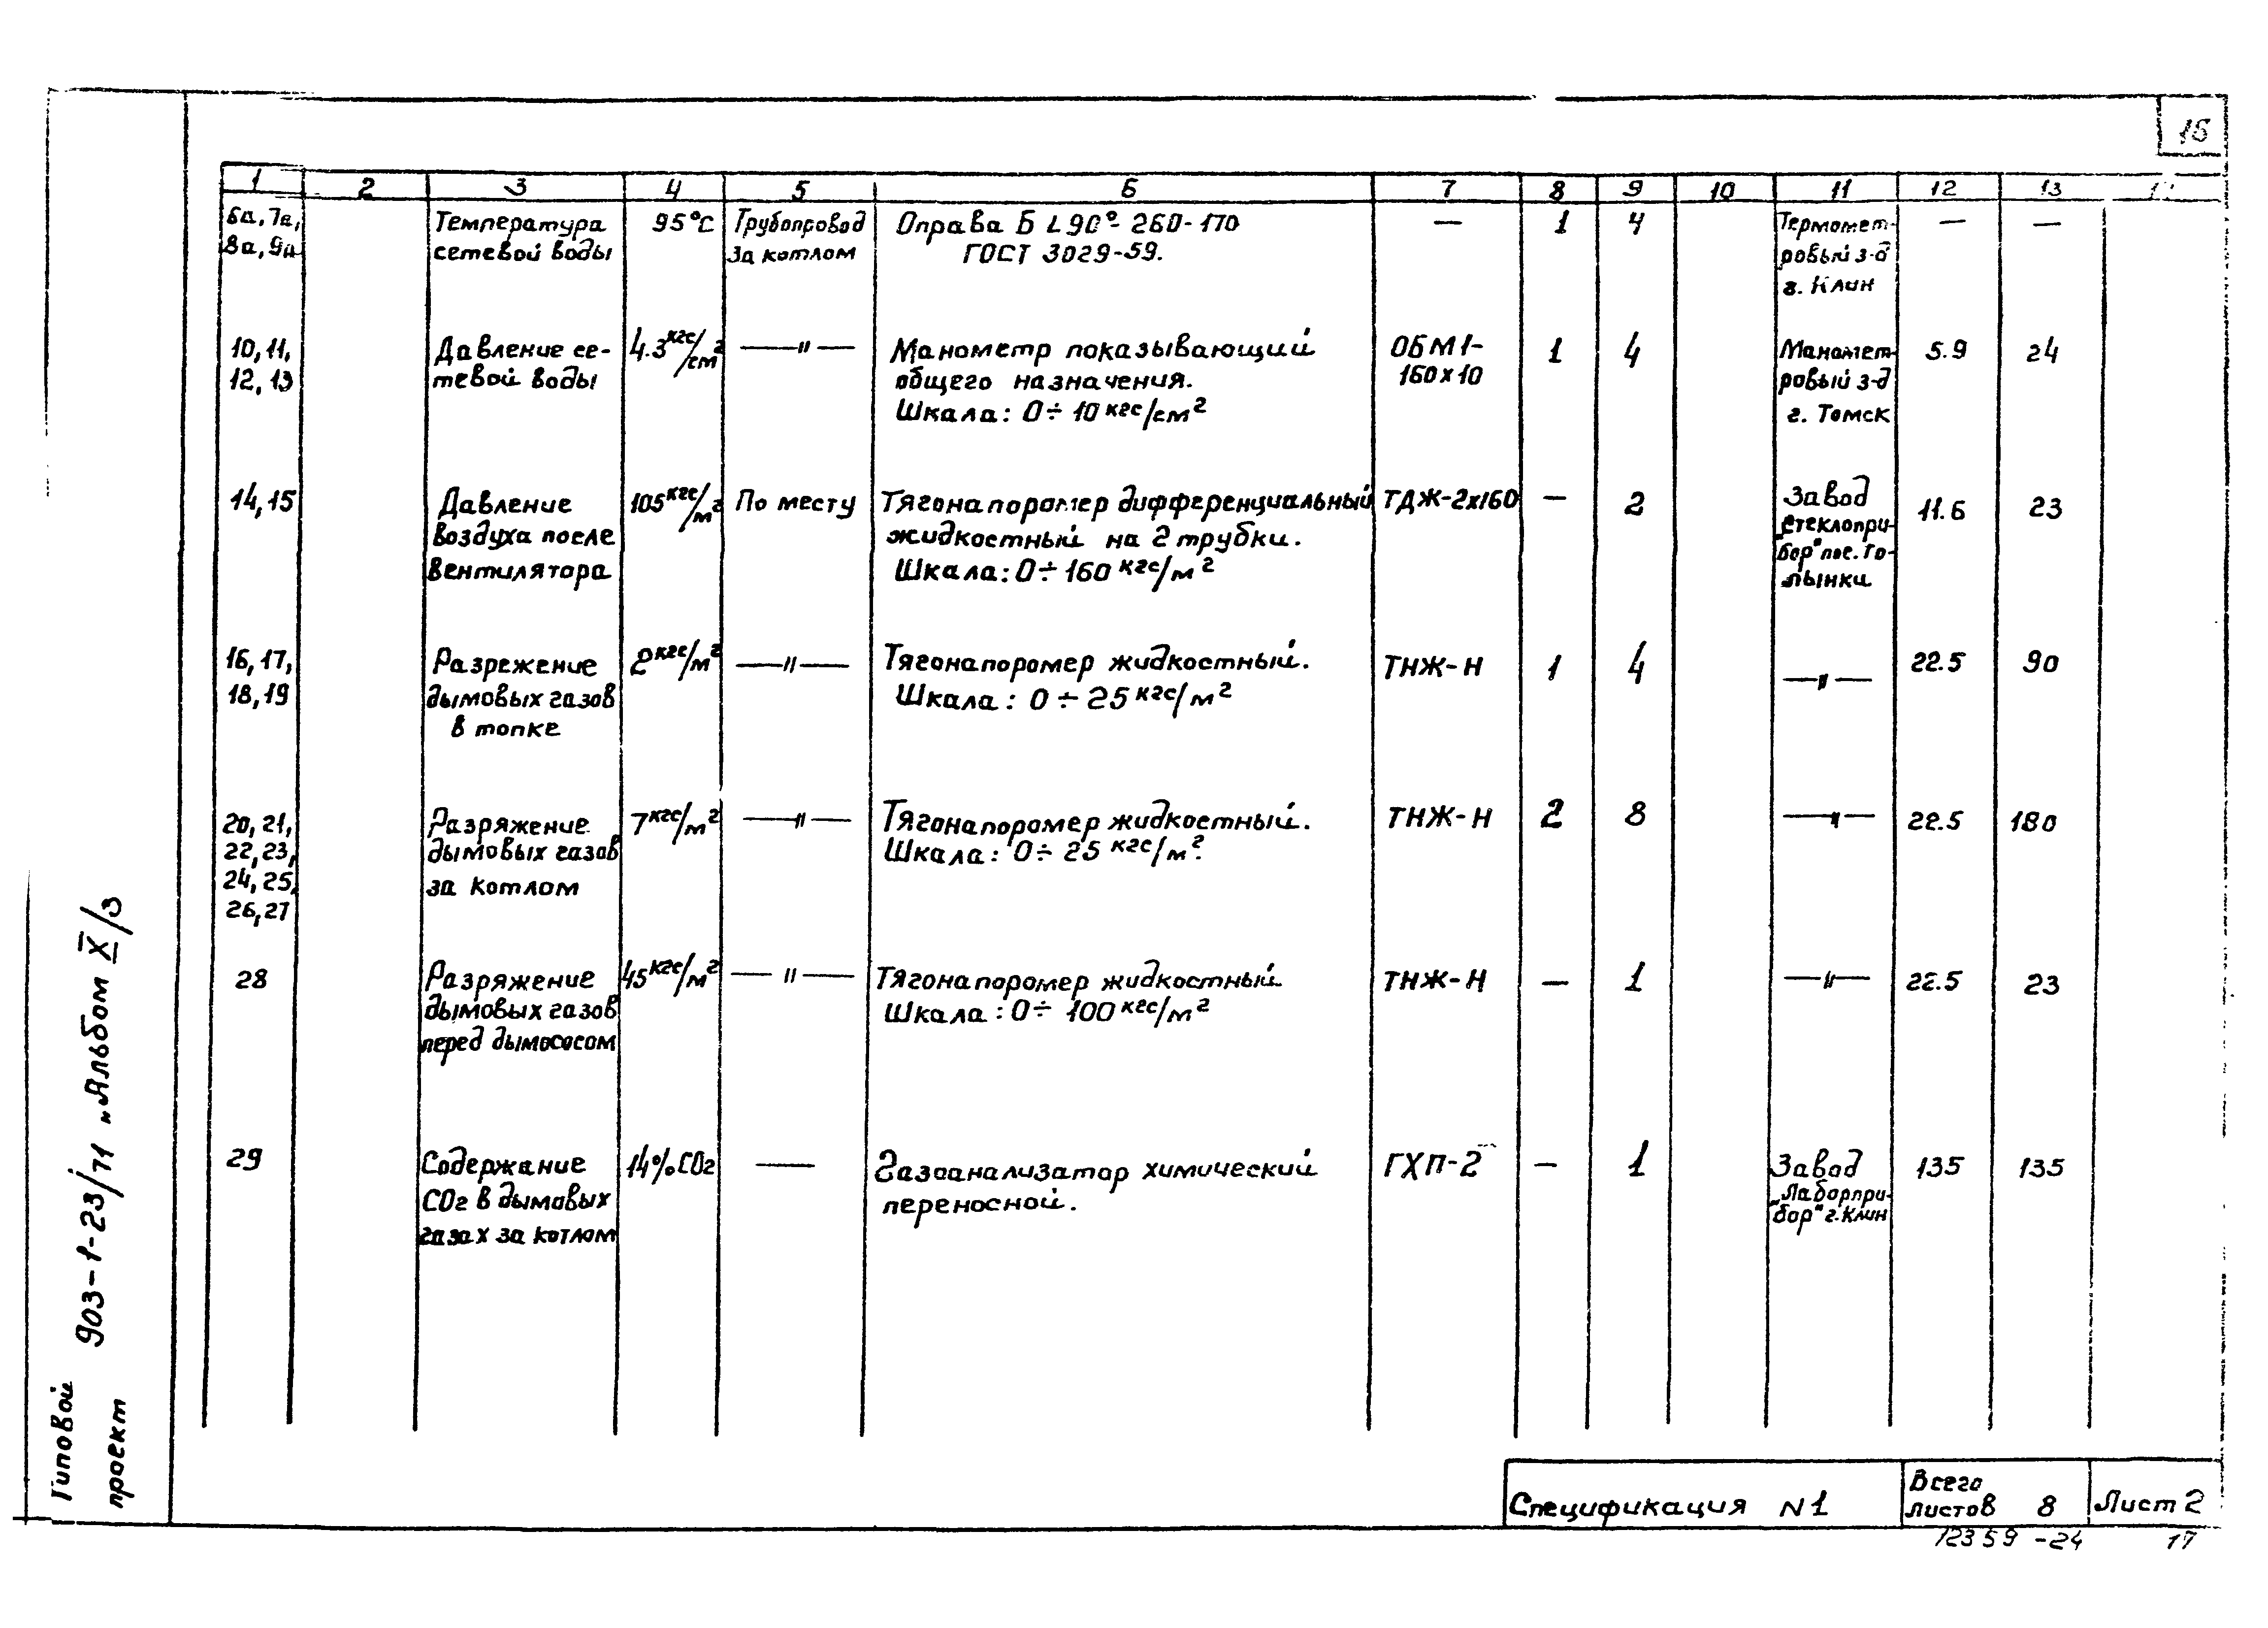 16
1 2 3 4 5 6 7 8 9 10 11 12 13
6а, 7а, Температура 95°С Трубопровод Оправа Б L 90° 260-170 — 1 4 Термомет- — —
8а, 9а сетевой воды за котлом ГОСТ 3029-59. ровый з-д
г. Клин
10, 11, Давление се- 4.3 кгс/см² —〃— Манометр показывающий ОБМ1- 1 4 Маномет- 5.9 24
12, 13 тевой воды общего назначения. 160х10 ровый з-д
Шкала: 0÷10 кгс/см² г. Томск
14, 15 Давление 105 кгс/м² По месту Тягонапоромер дифференциальный ТДЖ-2х160 — 2 Завод 11.6 23
воздуха после жидкостный на 2 трубки. „Стеклопри-
вентилятора Шкала: 0÷160 кгс/м² бор" пос. Го-
лынки
16, 17, Разрежение 2 кгс/м² —〃— Тягонапоромер жидкостный. ТНЖ-Н 1 4 —〃— 22.5 90
18, 19 дымовых газов Шкала: 0÷25 кгс/м²
в топке
20, 21, Разряжение 7 кгс/м² —〃— Тягонапоромер жидкостный. ТНЖ-Н 2 8 —〃— 22.5 180
22, 23, дымовых газов Шкала: 0÷25 кгс/м².
24, 25, за котлом
26, 27
28 Разряжение 45 кгс/м² —〃— Тягонапоромер жидкостный ТНЖ-Н — 1 —〃— 22.5 23
дымовых газов Шкала: 0÷100 кгс/м²
перед дымососом
29 Содержание 14% СО2 — Газоанализатор химический ГХП-2 — 1 Завод 135 135
СО2 в дымовых переносной. „Лаборпри-
газах за котлом бор" г. Клин
Типовой проект 903-1-23/71 „Альбом X/3
Спецификация N1 Всего листов 8 Лист 2
12359 -24 17